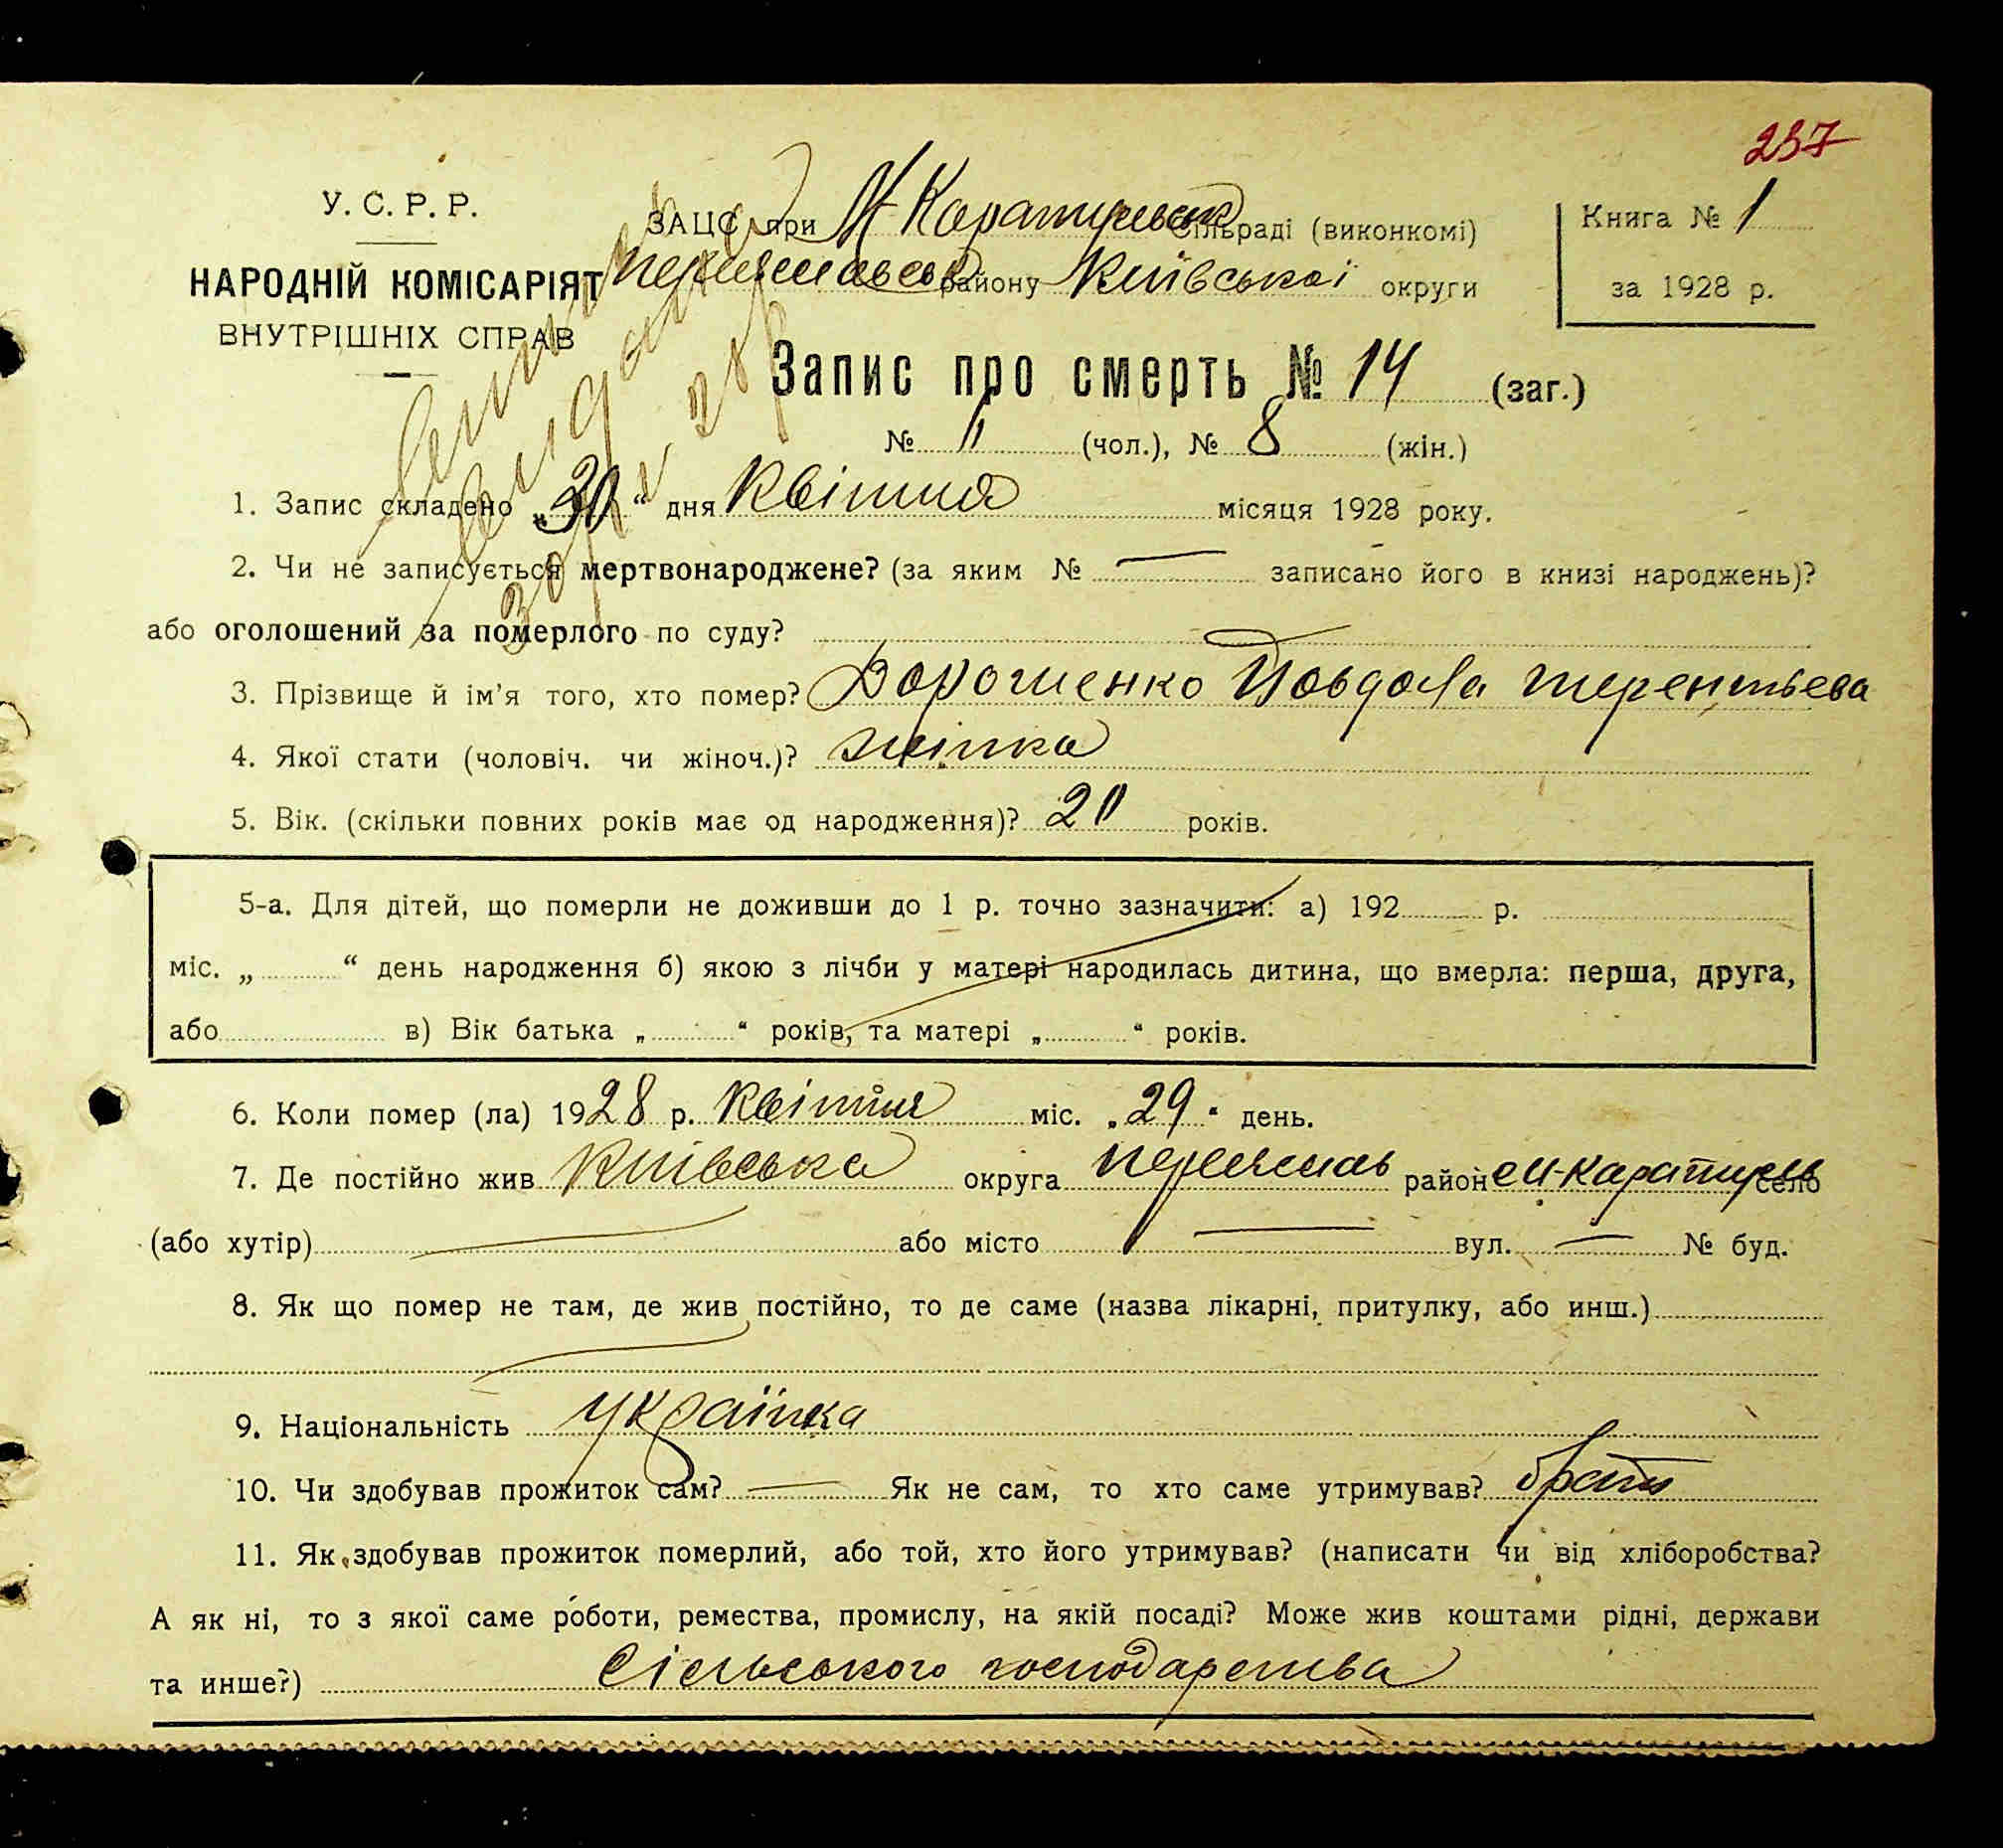 237
У. С. Р. Р.
НАРОДНІЙ КОМІСАРІЯТ
ВНУТРІШНІХ СПРАВ
ЗАЦС при М Каратульск сільраді (виконкомі)
району Київської округи
Книга № 1
за 1928 р.
Запис про смерть № 14 (заг.)
№ (чол.), № 8 (жін.)
1. Запис складено „30“ дня Квітня місяця 1928 року.
2. Чи не записується мертвонароджене? (за яким № — записано його в книзі народжень)?
або оголошений за померлого по суду?
3. Прізвище й ім’я того, хто помер? Дорошенко Терентьева
4. Якої стати (чоловіч. чи жіноч.)? жінка
5. Вік. (скільки повних років має од народження)? 20 років.
5-а. Для дітей, що померли не доживши до 1 р. точно зазначити: а) 192 р.
міс. „ “ день народження б) якою з лічби у матері народилась дитина, що вмерла: перша, друга,
або в) Вік батька „ “ років, та матері „ “ років.
6. Коли помер (ла) 1928 р. Квітня міс. „29“ день.
7. Де постійно жив Київська округа Переяслав район с М-Каратуль село
(або хутір) — або місто — вул. — № буд.
8. Як що помер не там, де жив постійно, то де саме (назва лікарні, притулку, або инш.)
9. Національність українка
10. Чи здобував прожиток сам? — Як не сам, то хто саме утримував? брат
11. Як здобував прожиток померлий, або той, хто його утримував? (написати чи від хліборобства?
А як ні, то з якої саме роботи, ремества, промислу, на якій посаді? Може жив коштами рідні, держави
та инше?) Сільського господарства